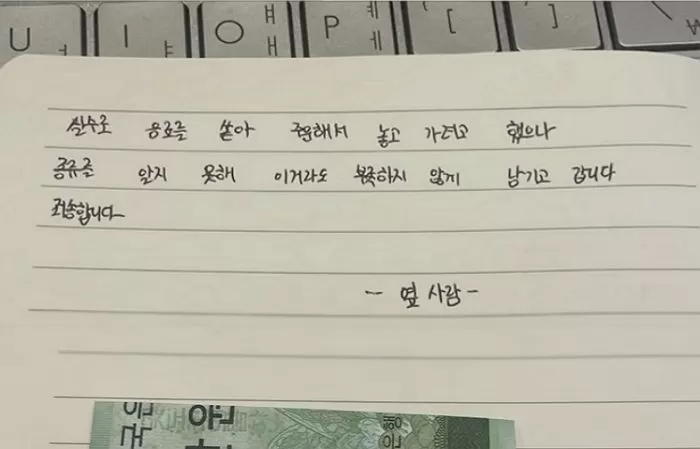 U ㅕ I ㅑ O ㅐ ㅒ P ㅔ ㅖ [ ] \ ₩
실수로 음료를 쏟아 주문해서 놓고 가려고 했으나
종류를 알지 못해 이거라도 부족하지 않게 남기고 갑니다
죄송합니다
- 옆 사람 -
은행